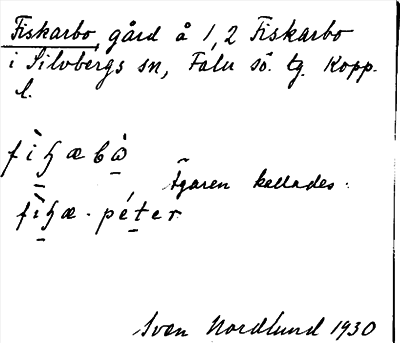 Fiskarbo, gård å 1,2 Fiskarbo
i Silvbergs sn, Falu sö. tg. Kopp.
l.
Ägaren kallades:
Sven Nordlund 1930